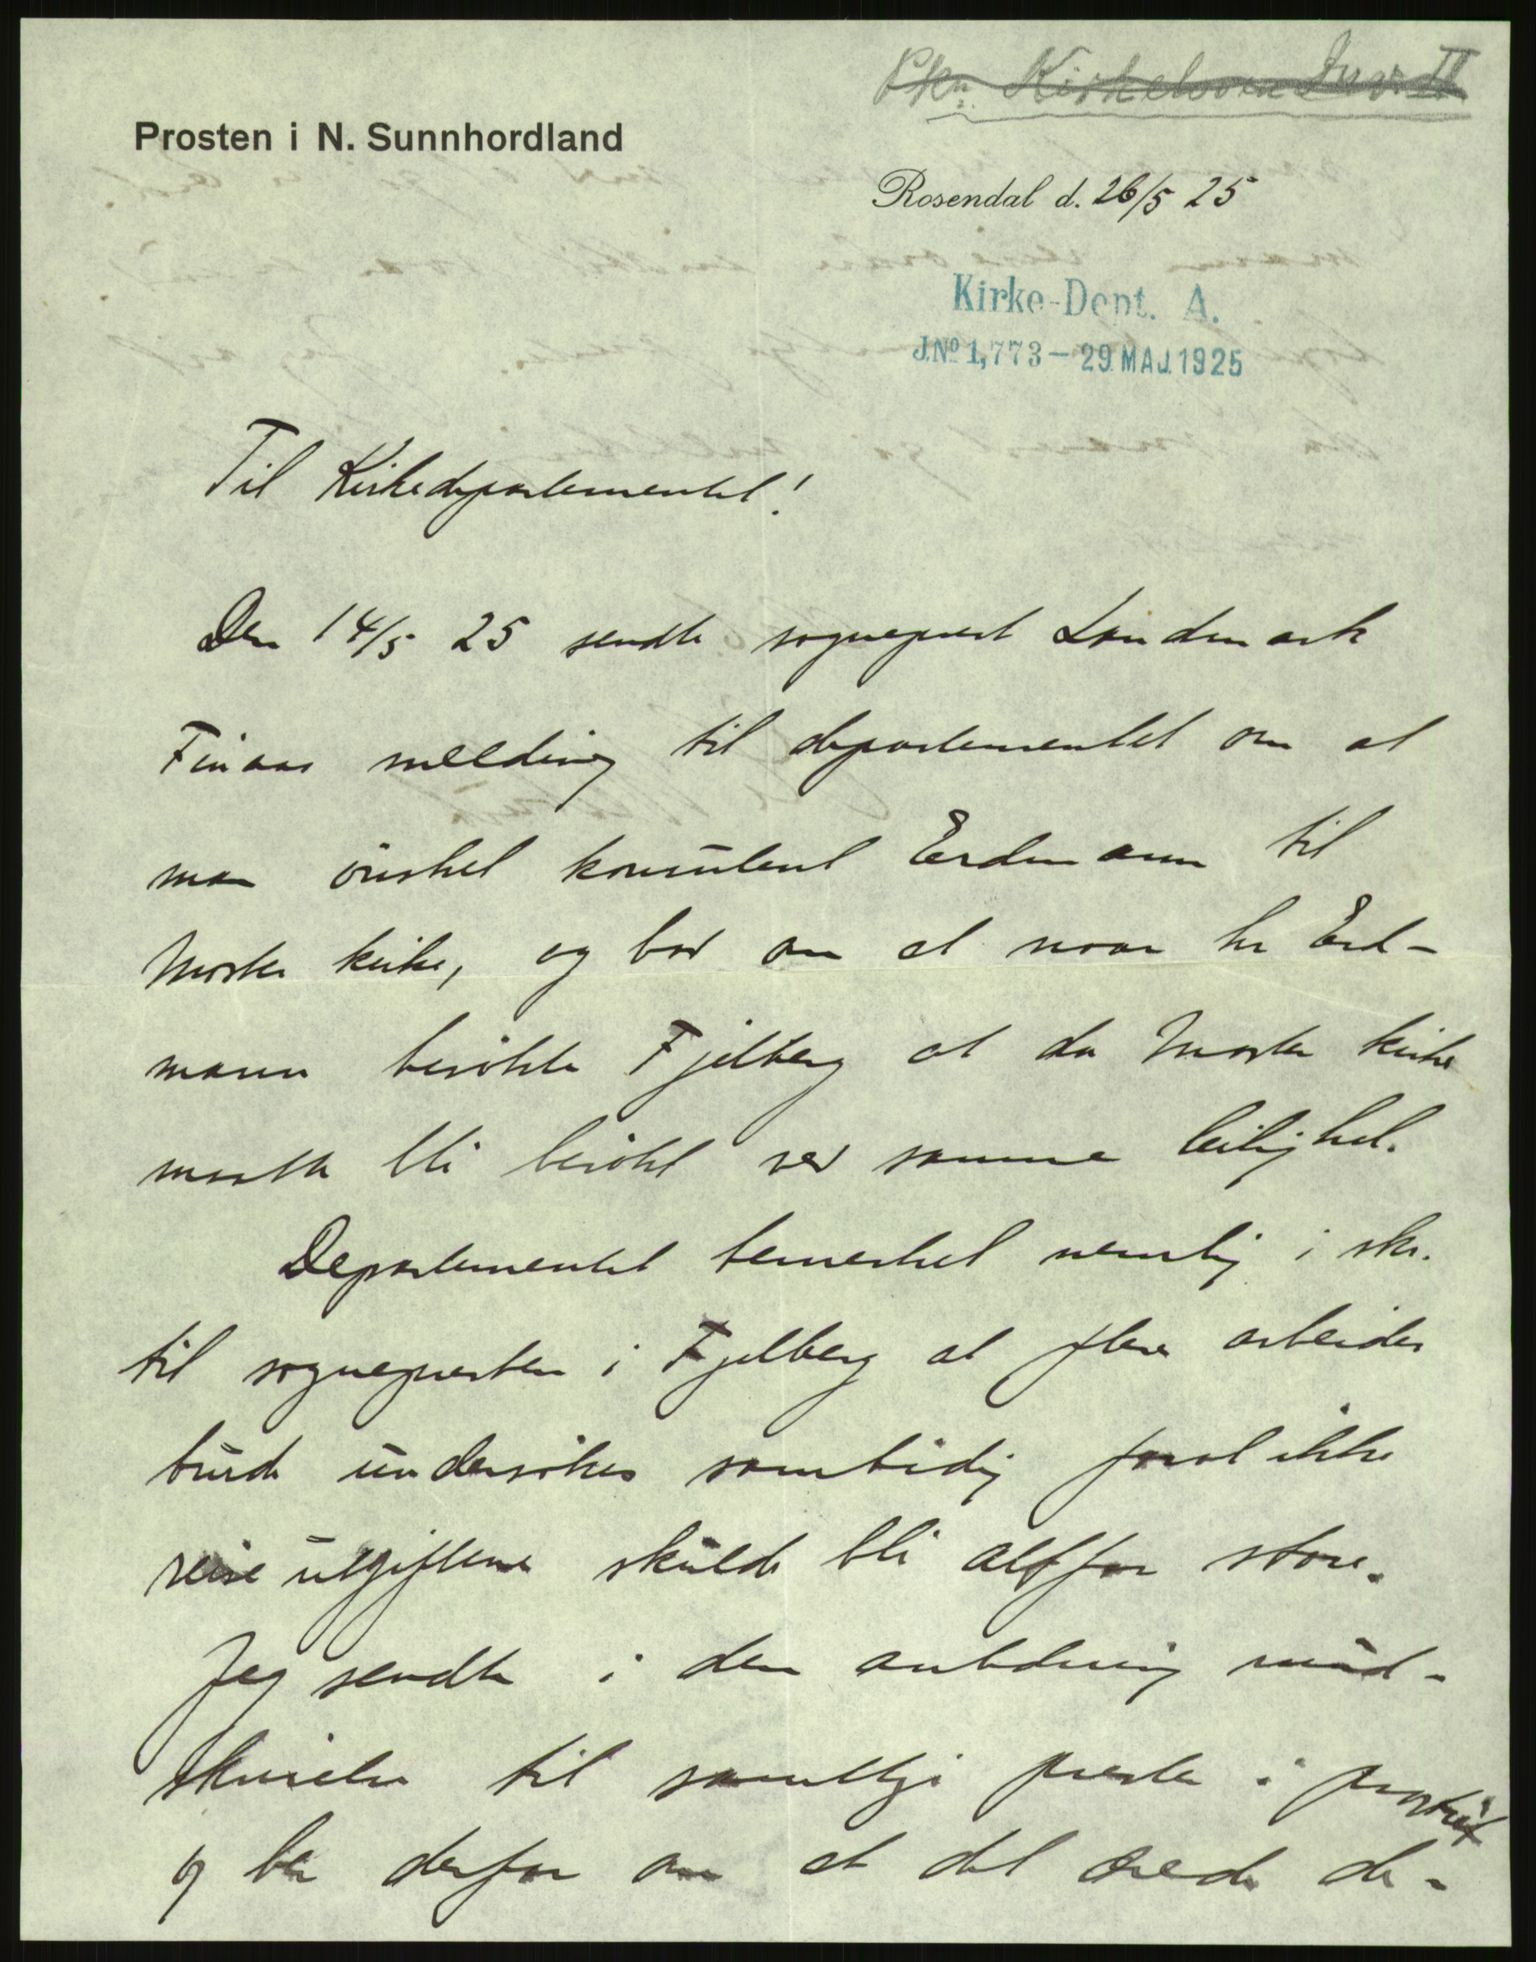 Prosten i N. Sunnhordland
Rosendal d. 26/5 25
Kirke-Dept. A.
J.Nº 1,773 – 29. MAJ. 1925
Til Kirkedepartementet!
Den 14/5 25 sendte sogneprest Landmark
Finaas melding til departementet om at
man ønsket konsulent Erdmann til
Moster kirke, og bad om at naar hr Erd-
mann besøkte Fjelberg at da Moster kirke
maatte bli besøkt ved samme leilighet.
Departementet bemerket nemlig i skr.
til sognepresten i Fjelberg at flere arbeider
burde undersøkes samtidig forat ikke
reiseutgiftene skulde bli altfor store.
Jeg sendte i den anledning rund-
skrivelse til samtlige prester i prostiet
og ber derfor om at det ærede de-